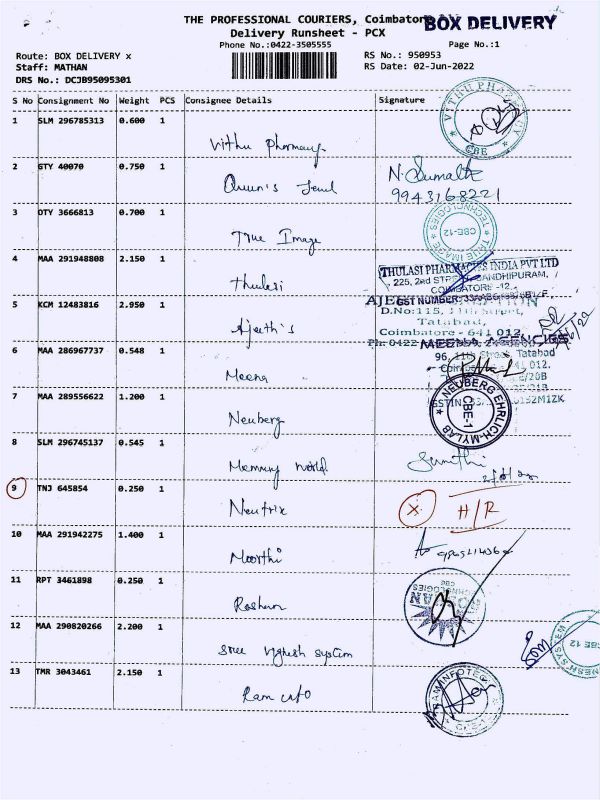 THE PROFESSIONAL COURIERS, Coimbatore
BOX DELIVERY
Delivery Runsheet - PCX
Phone No.:0422-3505555
Page No.:1
Route: BOX DELIVERY x
Staff: MATHAN
DRS No.: DCJB95095301
RS No.: 950953
RS Date: 02-Jun-2022
S No Consignment No Weight PCS Consignee Details Signature
1 SLM 296785313 0.600 1 Vithu pharmacy
VITHU PHARMACY CBE
2 GTY 40070 0.750 1
9943168221
3 OTY 3666813 0.700 1 True Image
TRUE IMAGE TECHNOLOGIES CBE-12
4 MAA 291948808 2.150 1 Thulasi
THULASI PHARMACIES INDIA PVT LTD
225, 2nd STREET, GANDHIPURAM,
COIMBATORE -12.
GST NUMBER:
5 KCM 12483816 2.950 1 Ajeeth's
D.No:115, 11th Street,
Tatabad,
Coimbatore - 641 012.
Ph: 0422
6 MAA 286967737 0.548 1 Meena
MEENA AGENCIES
96, 11th Street, Tatabad
7 MAA 289556622 1.200 1 Neuberg
NEUBERG EHRLICH-MYLAB CBE-1
8 SLM 296745137 0.545 1 Memory world
9 TNJ 645854 0.250 1 Neutrix X H/R
10 MAA 291942275 1.400 1 Moorthi
11 RPT 3461898 0.250 1
12 MAA 290820266 2.200 1 Sree Vignesh System
CBE 12
13 TMR 3043461 2.150 1 Ram info